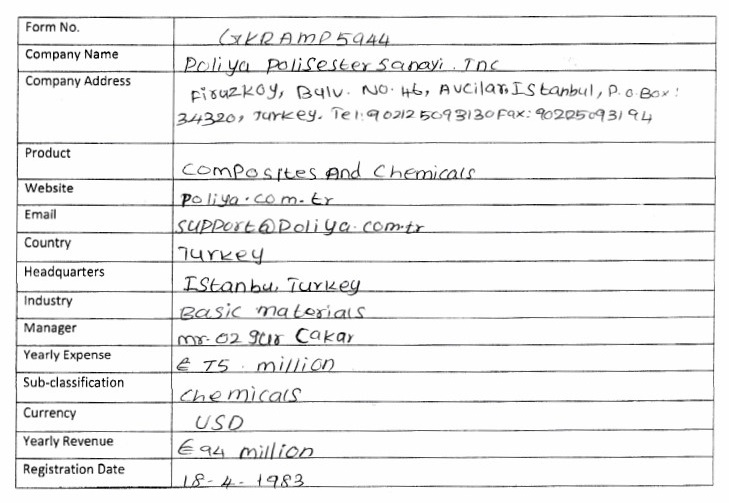 Form No. GKRAMP5944
Company Name Poliya Polisester Sanayi. Inc
Company Address Firuzkoy, Bulv. No. 46, Avcilar, IStanbul, P.O.Box:
34320, Turkey. Tel:902125093130 Fax: 90225093194
Product Composites And Chemicals
Website Poliya.com.tr
Email support@Poliya.com.tr
Country Turkey
Headquarters IStanbu, Turkey
Industry Basic materials
Manager mr. Ozgur Cakar
Yearly Expense € 75. million
Sub-classification Chemicals
Currency USD
Yearly Revenue € 94 million
Registration Date 18-4-1983